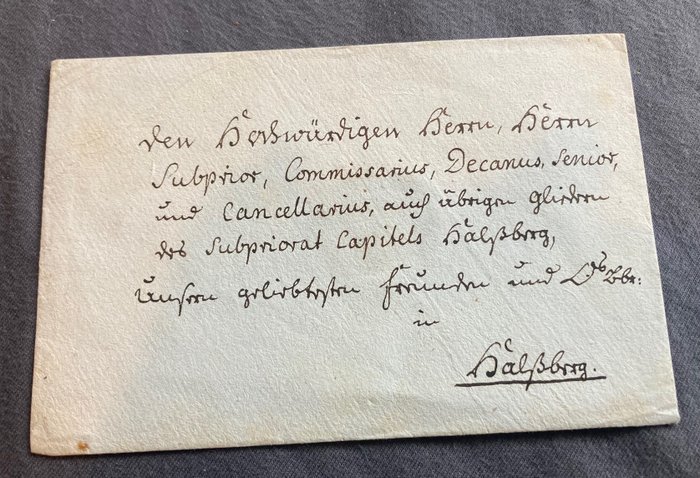 Den Hochwürdigen Herrn, Herrn
Subprior, Commissarius, Decanus, Senior,
und Cancellarius, auch übrigen Gliedern
des Subpriorat Capitels Halßberg,
Unsern geliebtesten Freunden und
in
Halßberg.